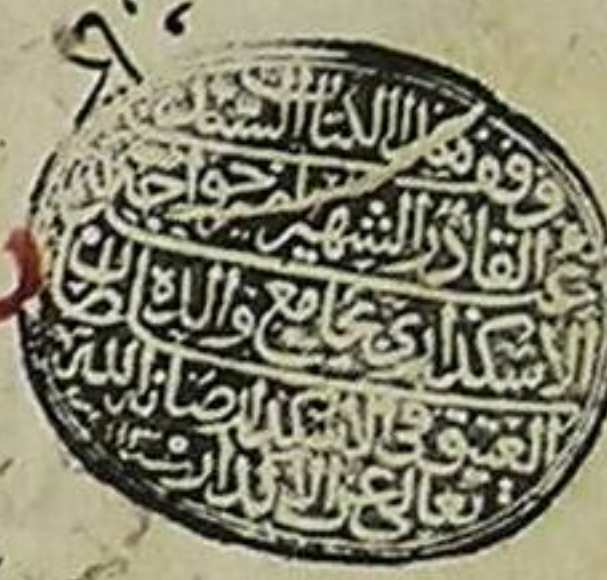 وقف هذا الكتاب
عبد القادر الشهير خواجه
الاسكدارى بجامع والده سلطان
العتيق فى الاسكدار صانه الله
تعالى عن الاكدار سنه